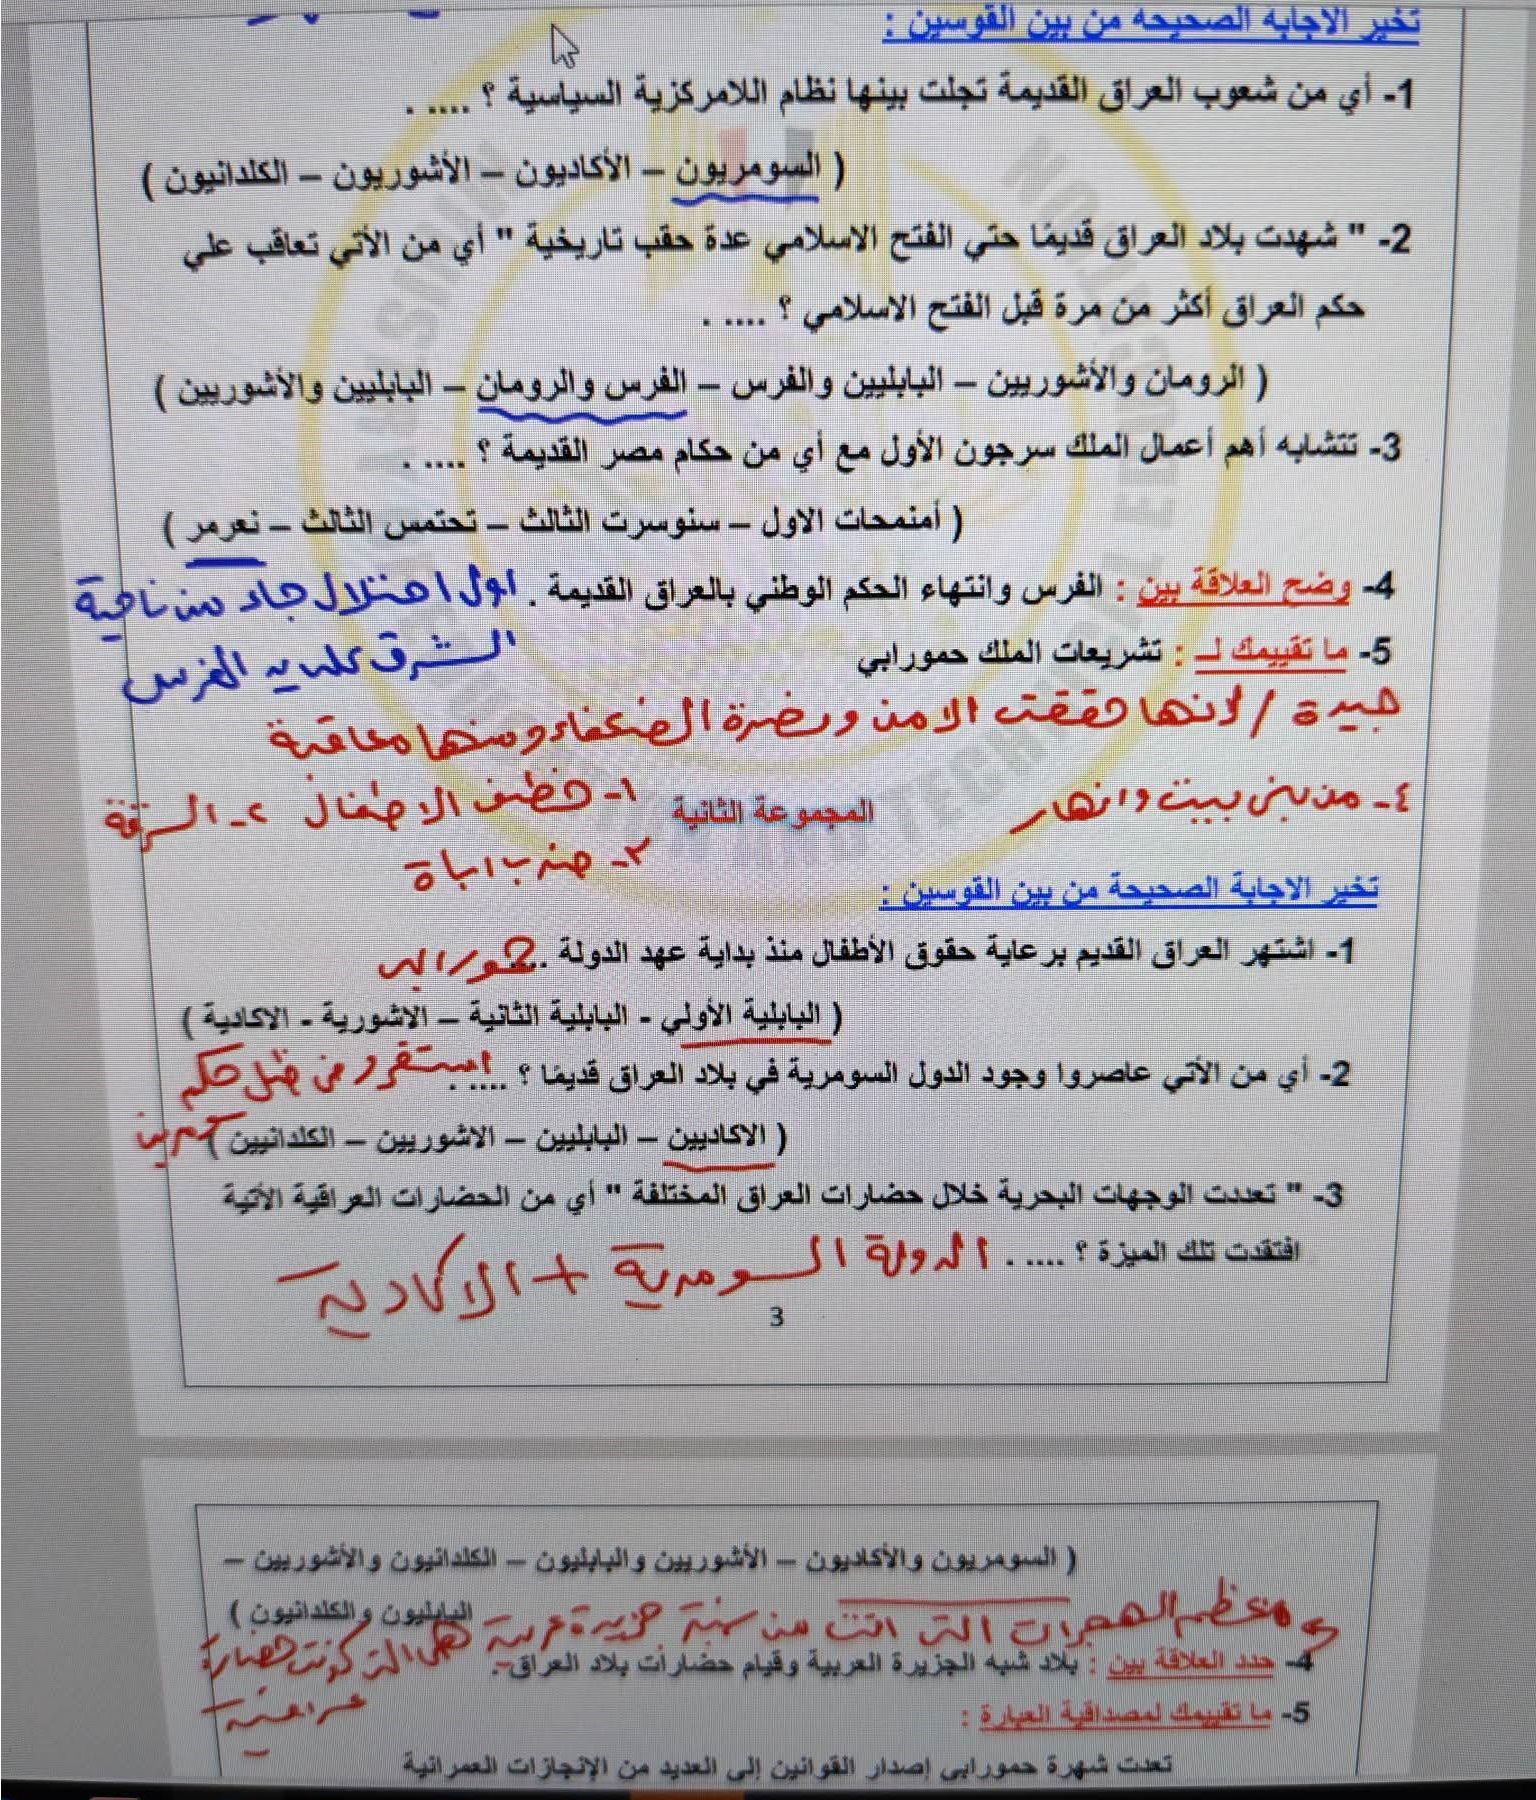 تخير الاجابة الصحيحة من بين القوسين :
1- أي من شعوب العراق القديمة تجلت بينها نظام اللامركزية السياسية ؟ .... .
( السومريون – الأكاديون – الأشوريون – الكلدانيون )
2- " شهدت بلاد العراق قديمًا حتي الفتح الاسلامي عدة حقب تاريخية " أي من الأتي تعاقب علي
حكم العراق أكثر من مرة قبل الفتح الاسلامي ؟ .... .
( الرومان والأشوريين – البابليين والفرس – الفرس والرومان – البابليين والأشوريين )
3- تتشابه أهم أعمال الملك سرجون الأول مع أي من حكام مصر القديمة ؟ .... .
( أمنمحات الاول – سنوسرت الثالث – تحتمس الثالث – نعرمر )
4- وضح العلاقة بين : الفرس وانتهاء الحكم الوطني بالعراق القديمة . اول احتلال جاء من ناحية
الشرق على يد الفرس
5- ما تقييمك لــ : تشريعات الملك حمورابي
جيدة / لانها حققت الامن ونصرة الضعفاء ومنها معاقبة
١- خطف الاطفال ٢- السرقة
المجموعة الثانية
٤- من بنى بيت وانهار
٣- ضرب اباة
تخير الاجابة الصحيحة من بين القوسين :
1- اشتهر العراق القديم برعاية حقوق الأطفال منذ بداية عهد الدولة .... حمورابى
( البابلية الأولي - البابلية الثانية – الاشورية - الاكادية )
2- أي من الأتي عاصروا وجود الدول السومرية في بلاد العراق قديمًا ؟ .... . استقروا فى ظل حكم
( الاكاديين – البابليين – الاشوريين – الكلدانيين )
3- " تعددت الوجهات البحرية خلال حضارات العراق المختلفة " أي من الحضارات العراقية الأتية
افتقدت تلك الميزة ؟ .... . الدولة السومرية + الاكادية
3
( السومريون والأكاديون – الأشوريين والبابليون – الكلدانيون والأشوريين –
البابليون والكلدانيون )
معظم الهجرات التى اتت من شبة جزيرة عربية هى التى كونت حضارة
عراقية
4- حدد العلاقة بين : بلاد شبه الجزيرة العربية وقيام حضارات بلاد العراق .
5- ما تقييمك لمصداقية العبارة :
تعدت شهرة حمورابي إصدار القوانين إلى العديد من الإنجازات العمرانية